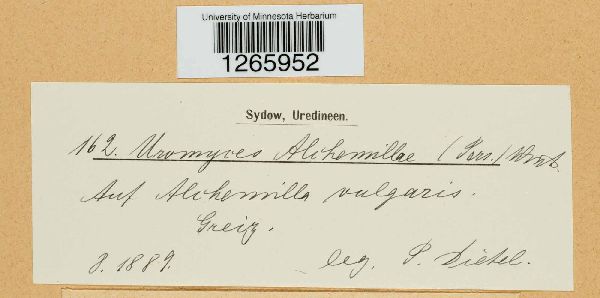 University of Minnesota Herbarium
1265952
Sydow, Uredineen.
162. Uromyces Alchemillae (Pers.) Wint.
Auf Alchemilla vulgaris.
Greiz.
8. 1889. leg. P. Dietel.